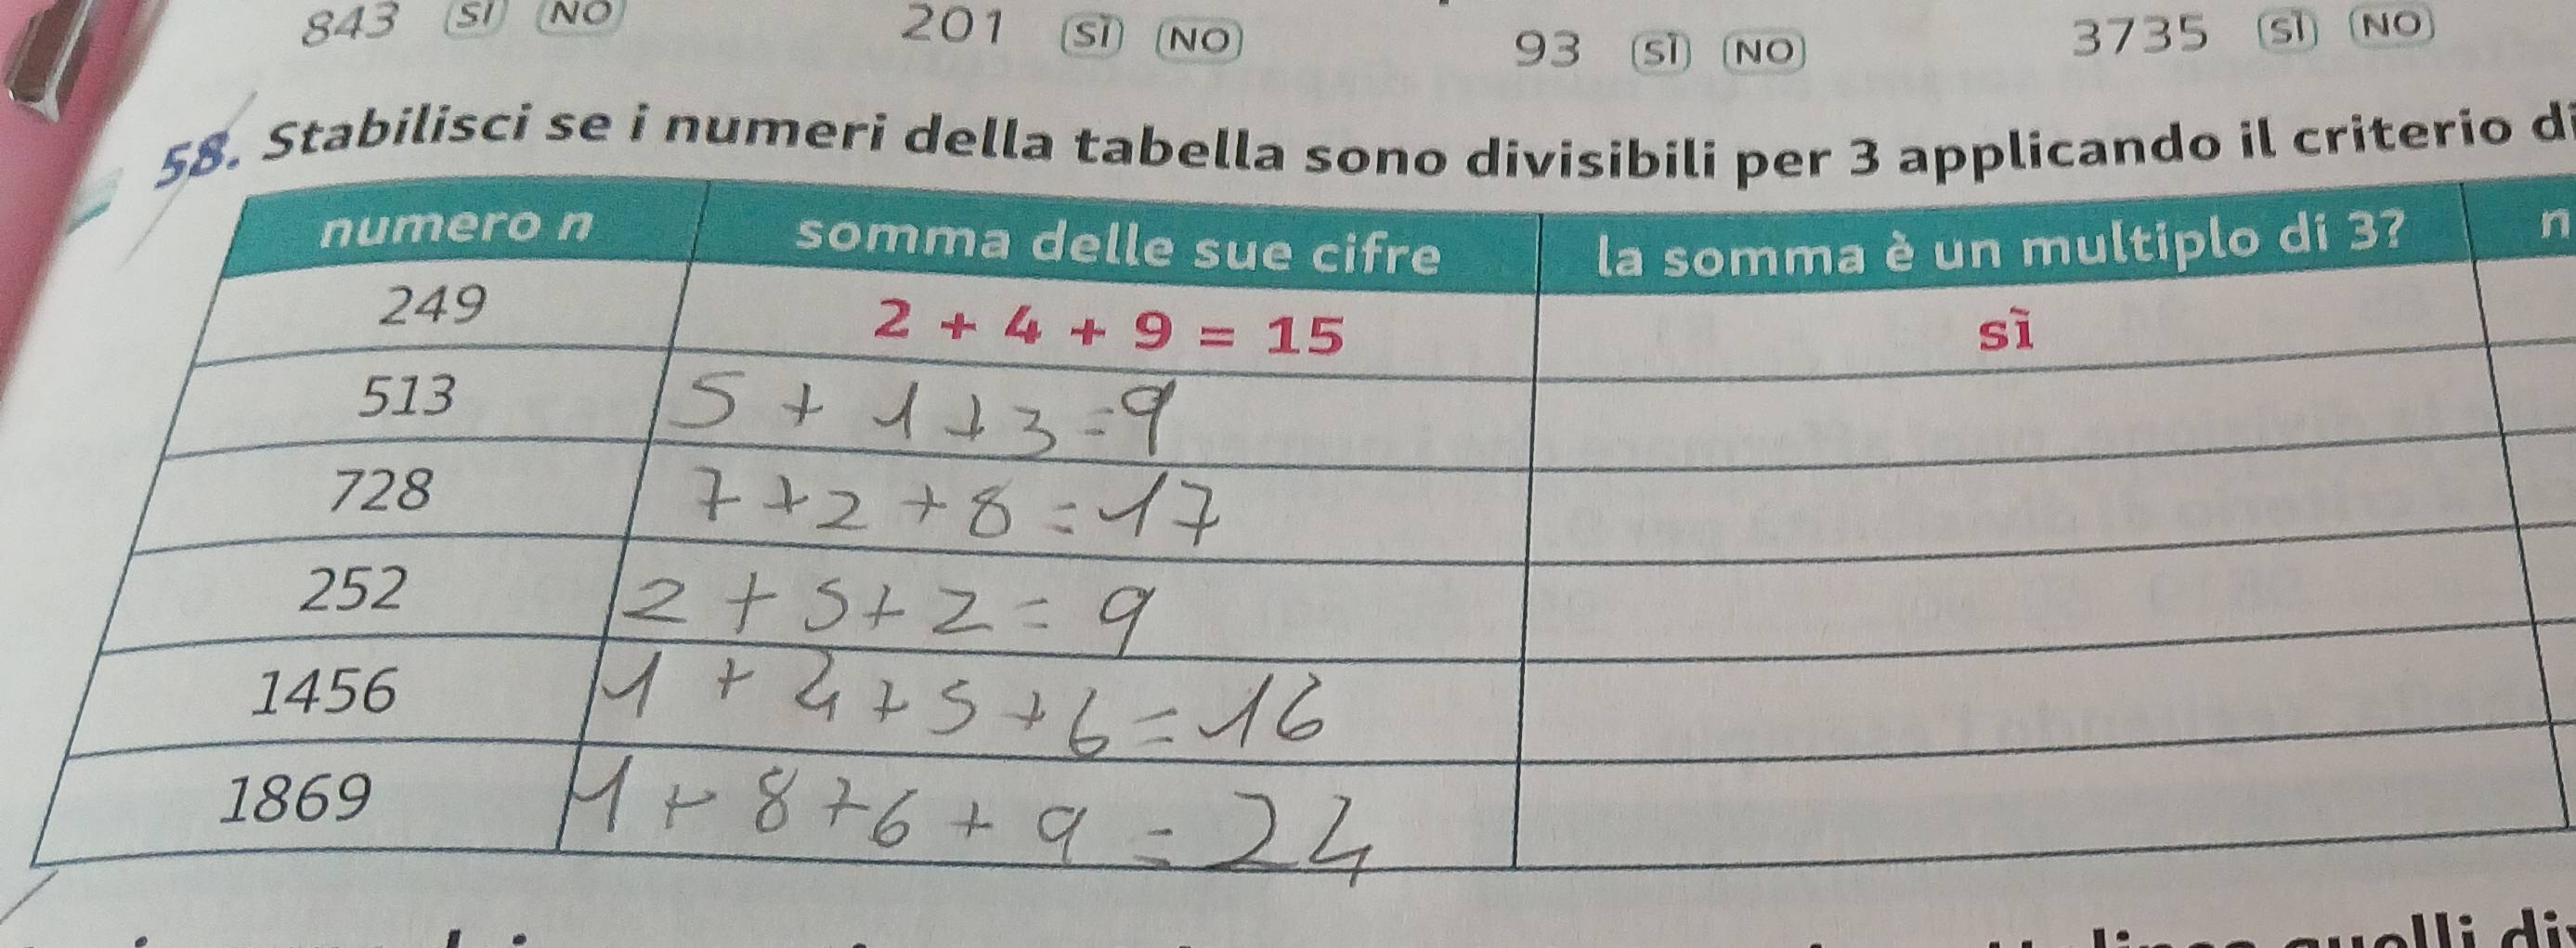 843 SÌ NO 201 SÌ NO 93 SÌ NO 3735 SÌ NO
58. Stabilisci se i numeri della tabella sono divisibili per 3 applicando il criterio di
numero n somma delle sue cifre la somma è un multiplo di 3? n
249 2 + 4 + 9 = 15 sì
513 5 + 1 + 3 = 9
728 7 + 2 + 8 = 17
252 2 + 5 + 2 = 9
1456 1 + 4 + 5 + 6 = 16
1869 1 + 8 + 6 + 9 = 24
quelli di